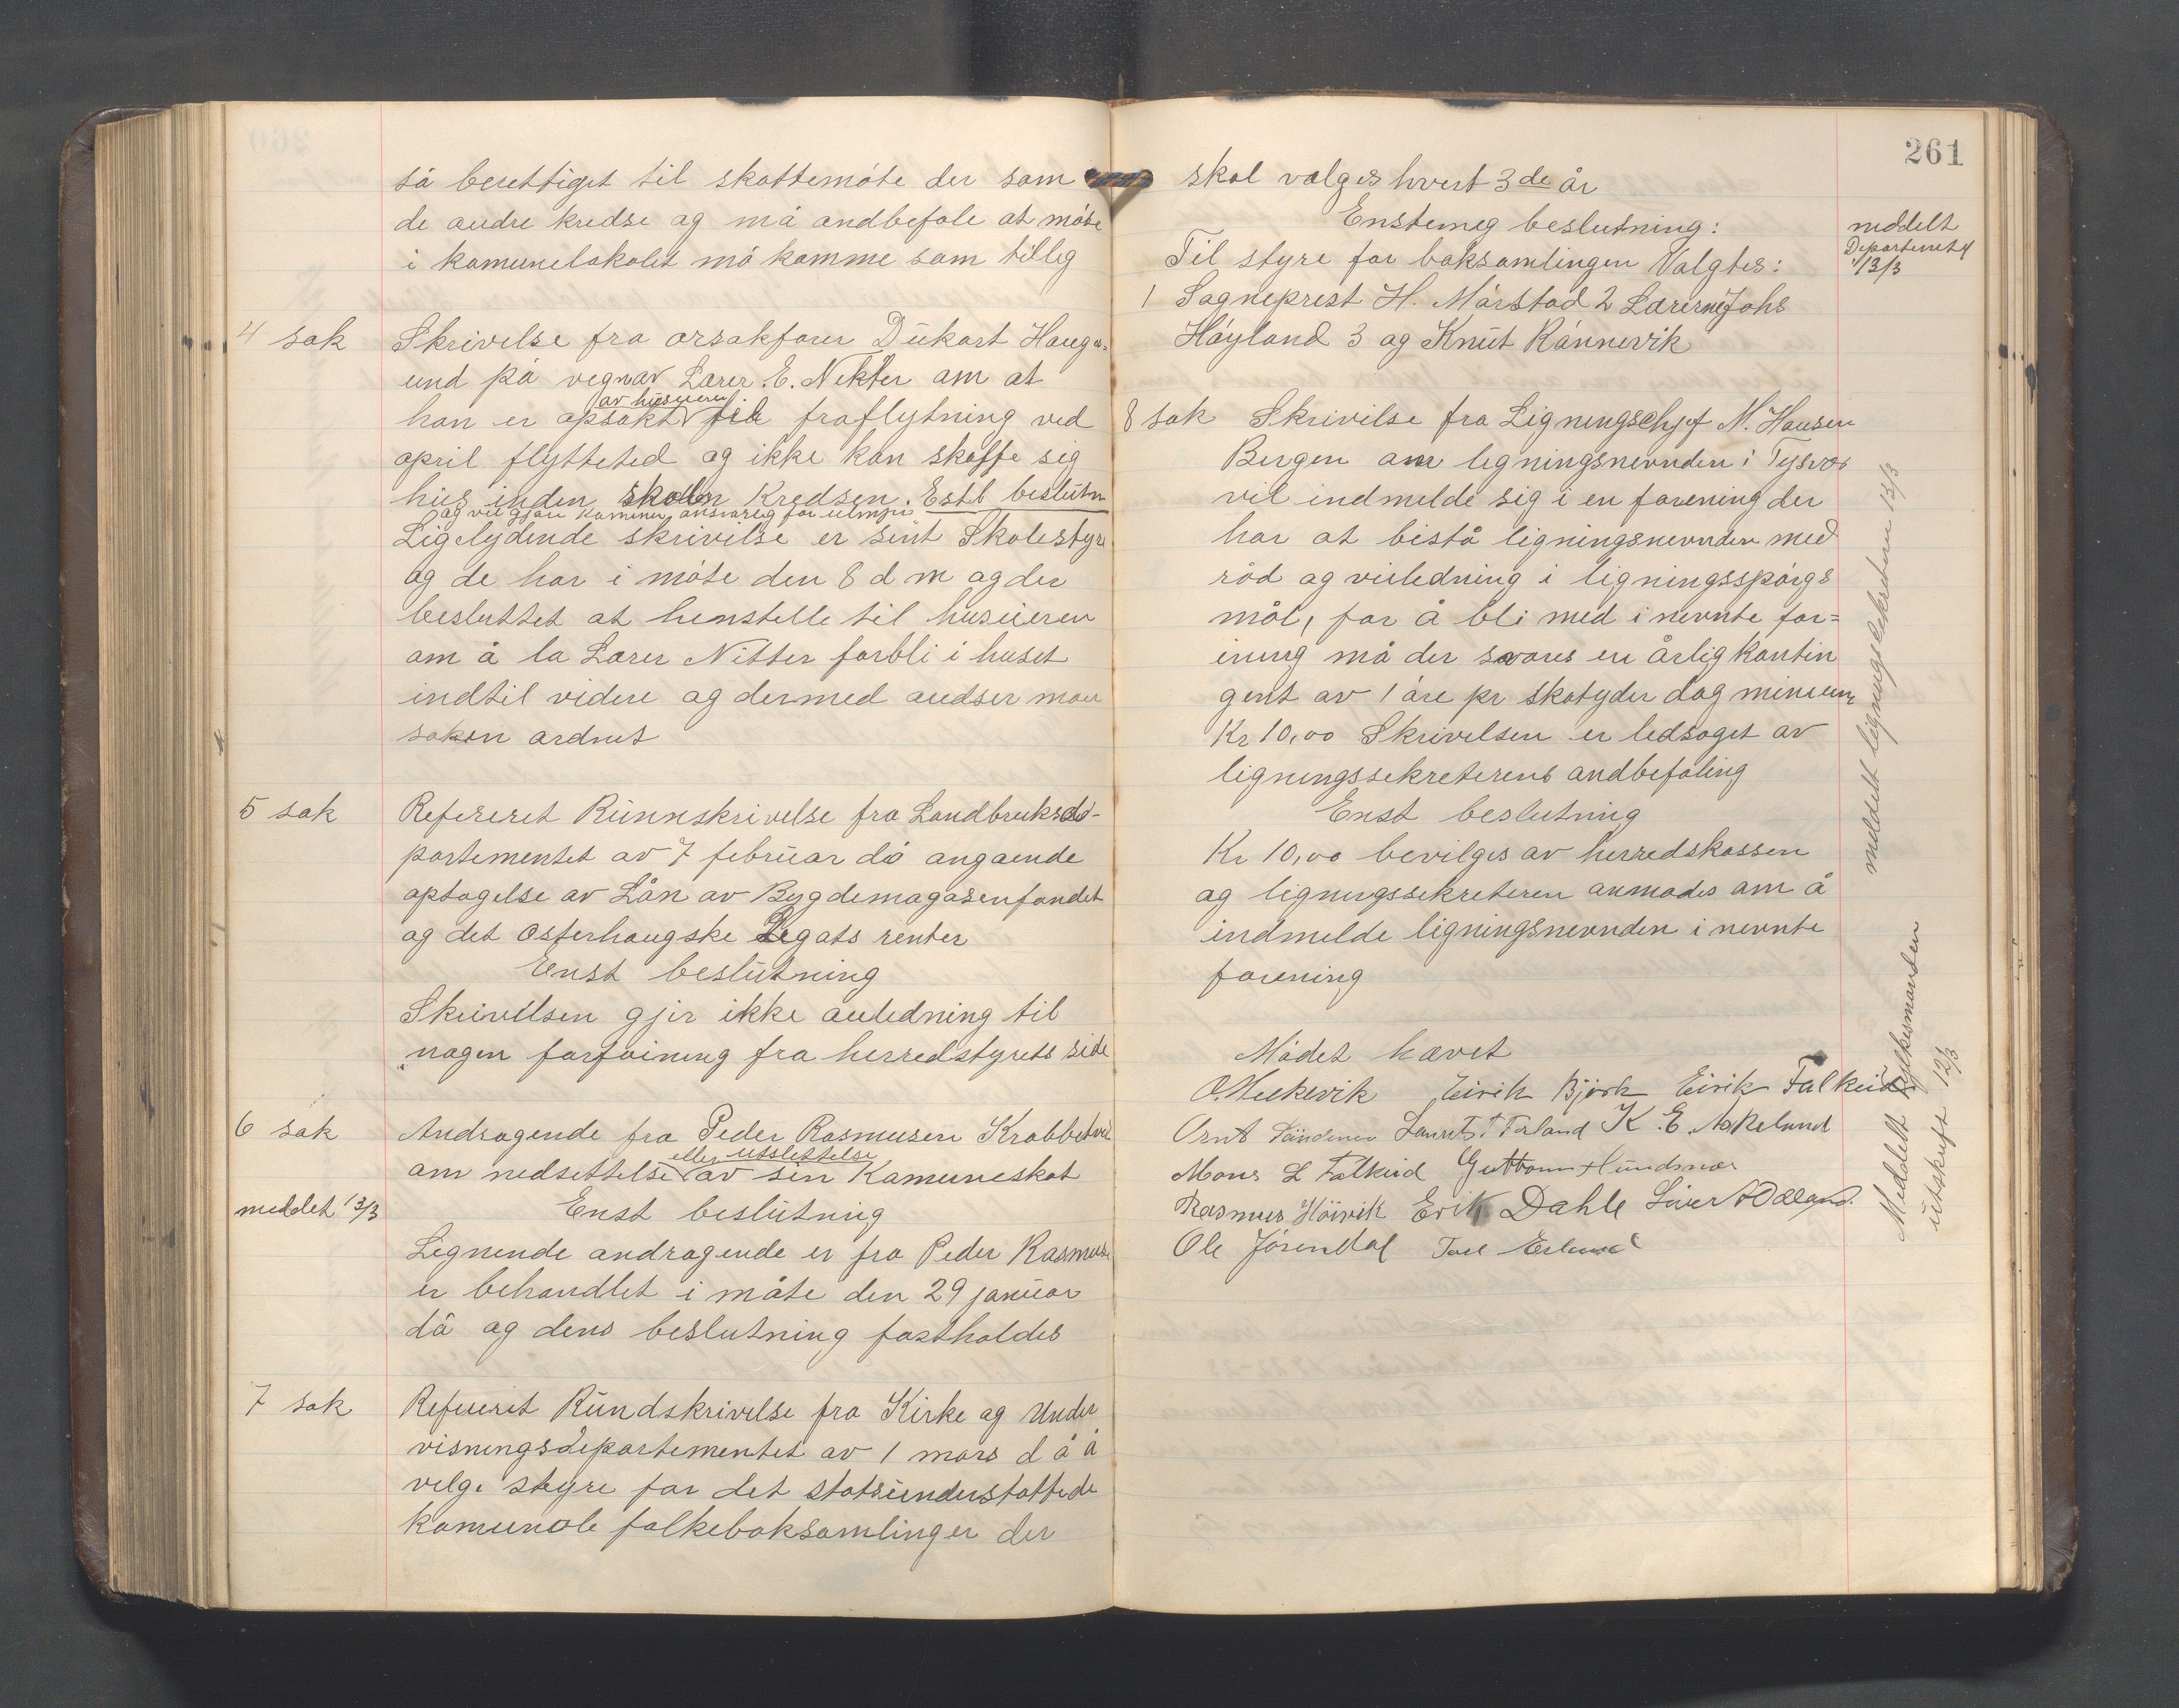 så berettiget til skattemöte der som
de andre kredse og må andbefale at möte
i komunelokalet må komme som tilleg
4 sak Skrivelse fra orsakförer Dukart Hauge-
sund på vegnav Lærer E. Nitter om at
av huseieren
han er opsakt til fraflytning ved
april flyttetid og ikke kan skaffe sig
hus inden skolen Kredsen. Estb beslutn
og vil gjöre Komunen ansvarlig for ulempe
Ligelydende skrivelse er sent Skolestyre
og de har i möte den 8 d m og der
besluttet at henstelle til huseieren
om å la Lærer Nitter forbli i huset
indtil videre og dermed andser man
saken ordnet
5 sak Refereret Runnskrivelse fra Landbruksde-
partementet av 7 februar då angaende
optagelse av Lån av Bygdemagasenfondet
og det Osterhaugske Legats renter
Enst beslutning
Skrivelsen gjir ikke anledning til
nogen forföining fra herredstyrets side
6 sak Andragende fra Peder Rasmusen Krabbetveit
eller utslettelse
om nedsettelse av sin Komuneskat
meddelt 13/3
Enst beslutning
Lignende andragende er fra Peder Rasmusen
er behandlet i måte den 29 januar
då og dens beslutning fastholdes
7 sak Refereret Rundskrivelse fra Kirke og Under
visningsdepartementet av 1 mars d å å
velge styre for det statsunderstöttede
komunale folkeboksamlinger der
261
skal vælges hvert 3de år
Enstemeg beslutning:
meddelt
Departementet
13/3
Til styre for boksamlingen Valgtes:
1 Sogneprest H. Mårstad 2 Lærerne Johs
Höyland 3 og Knut Rånnevik
8 sak Skrivelse fra Ligningschef N. Hansen
Bergen om ligningsnevnden i Tysvær
vil indmelde sig i en forening der
har at bistå ligningsnevnden med
råd og veiledning i ligningsspörgs
mål, for å bli med i nevnte for=
ening må der svares en årlig kontin
gent av 1 öre pr skatyder dog minimum
Kr 10,00 Skrivelsen er ledsaget av
ligningssekreterens andbefaling
Enst beslutning
Kr 10,00 bevilges av herredskassen
og ligningssekreteren anmodes om å
indmelde ligningsnevnden i nevnte
forening
meddelt ligningssekreteren 13/3
Mödet hævet
O. Meekevik Eirik Bjork Eirik Falkeid
Ornt Laurits T Førland K. E. Askelund
Mons L Falkeid Guttorm Hundsnes
Rasmus Höivik Erik Dahle Siver A Odland.
Ole Jörendal Erlund
Meddelt Fylkesmanden
utskrift 12/3